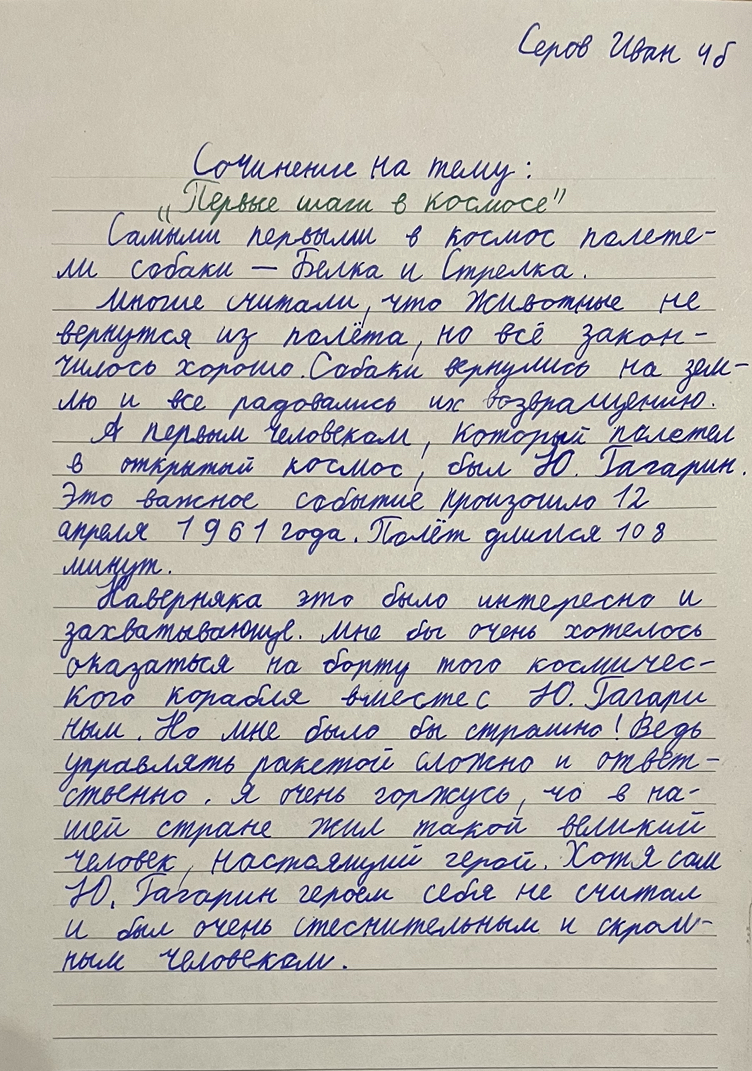 Серов Иван 4б
Сочинение на тему:
„Первые шаги в космосе"
Самыми первыми в космос полете-
ли собаки — Белка и Стрелка.
Многие считали, что животные не
вернутся из полёта, но всё закон-
чилось хорошо. Собаки вернулись на зем-
лю и все радовались их возвращению.
А первым человеком, который полетел
в открытый космос, был Ю. Гагарин.
Это важное событие произошло 12
апреля 1961 года. Полёт длился 108
минут.
Наверняка это было интересно и
захватывающе. Мне бы очень хотелось
оказаться на борту того космичес-
кого корабля вместе с Ю. Гагари
ным. Но мне было бы страшно! Ведь
управлять ракетой сложно и ответ-
ственно. Я очень горжусь, чо в на-
шей стране жил такой великий
человек, настоящий герой. Хотя сам
Ю. Гагарин героем себя не считал
и был очень стеснительным и скром-
ным человеком.